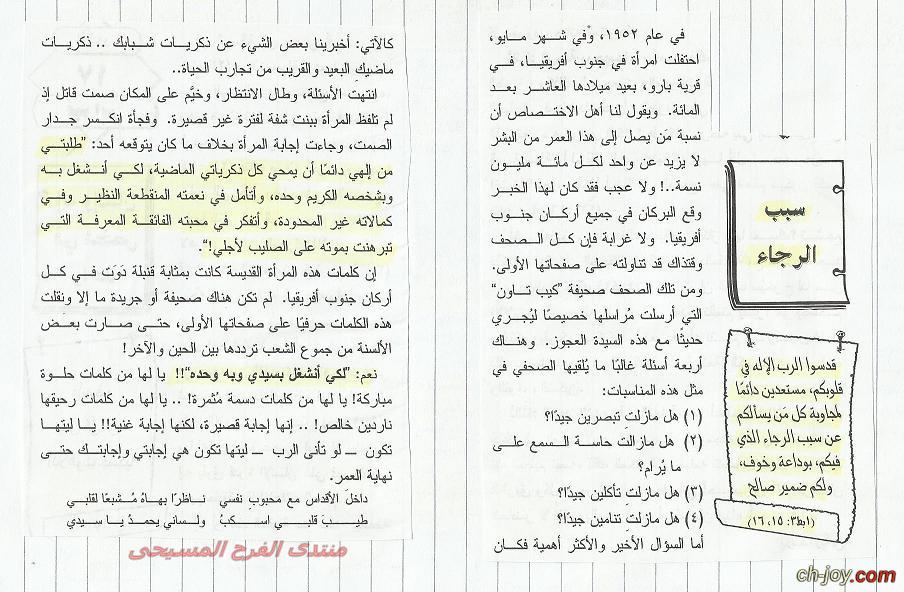 سبب
الرجاء
قدسوا الرب الإله في
قلوبكم، مستعدين دائمًا
لمجاوبة كل مَن يسألكم
عن سبب الرجاء الذي
فيكم، بوداعة وخوف،
ولكم ضمير صالح
(١بط٣: ١٥، ١٦)
في عام ١٩٥٢، وفي شهر مايو،
احتفلت امرأة في جنوب أفريقيا، في
قرية بارو، بعيد ميلادها العاشر بعد
المائة. ويقول لنا أهل الاختصاص أن
نسبة مَن يصل إلى هذا العمر من البشر
لا يزيد عن واحد لكل مائة مليون
نسمة..! ولا عجب فقد كان لهذا الخبر
وقع البركان في جميع أركان جنوب
أفريقيا. ولا غرابة فإن كل الصحف
وقتذاك قد تناولته على صفحاتها الأولى.
ومن تلك الصحف صحيفة "كيب تاون"
التي أرسلت مُراسلها خصيصًا ليُجري
حديثًا مع هذه السيدة العجوز. وهناك
أربعة أسئلة غالبًا ما يُلقيها الصحفي في
مثل هذه المناسبات:
(١) هل مازلتِ تبصرين جيدًا؟
(٢) هل مازالت حاسة السمع على
ما يُرام؟
(٣) هل مازلتِ تأكلين جيدًا؟
(٤) هل مازلتِ تنامين جيدًا؟
أما السؤال الأخير والأكثر أهمية فكان
كالآتي: أخبرينا بعض الشيء عن ذكريات شبابك .. ذكريات
ماضيكِ البعيد والقريب من تجارب الحياة..
انتهت الأسئلة، وطال الانتظار، وخيَّم على المكان صمت قاتل إذ
لم تلفظ المرأة ببنت شفة لفترة غير قصيرة. وفجأة انكسر جدار
الصمت، وجاءت إجابة المرأة بخلاف ما كان يتوقعه أحد: "طلبتي
من إلهي دائمًا أن يمحي كل ذكرياتي الماضية، لكي أنشغل به
وبشخصه الكريم وحده، وأتأمل في نعمته المنقطعة النظير وفي
كمالاته غير المحدودة، وأتفكر في محبته الفائقة المعرفة التي
تبرهنت بموته على الصليب لأجلي!".
إن كلمات هذه المرأة القديسة كانت بمثابة قنبلة دَوَت في كل
أركان جنوب أفريقيا. لم تكن هناك صحيفة أو جريدة ما إلا ونقلت
هذه الكلمات حرفيًا على صفحاتها الأولى، حتى صارت بعض
الألسنة من جموع الشعب ترددها بين الحين والآخر!
نعم: "لكي أنشغل بسيدي وبه وحده"!! يا لها من كلمات حلوة
مباركة! يا لها من كلمات دسمة مُثمرة! .. يا لها من كلمات رحيقها
ناردين خالص! .. إنها إجابة قصيرة، لكنها إجابة غنية!! يا ليتها
تكون ــ لو تأنى الرب ــ ليتها تكون هي إجابتي وإجابتك حتى
نهاية العمر.
داخلَ الأقداس مع محبوبِ نفسي ناظرًا بهاهُ مُشبعًا لقلبي
طيبَ قلبي أسكبُ ولساني يحمدُ يا سيدي
منتدى الفرح المسيحى
ch-joy.com